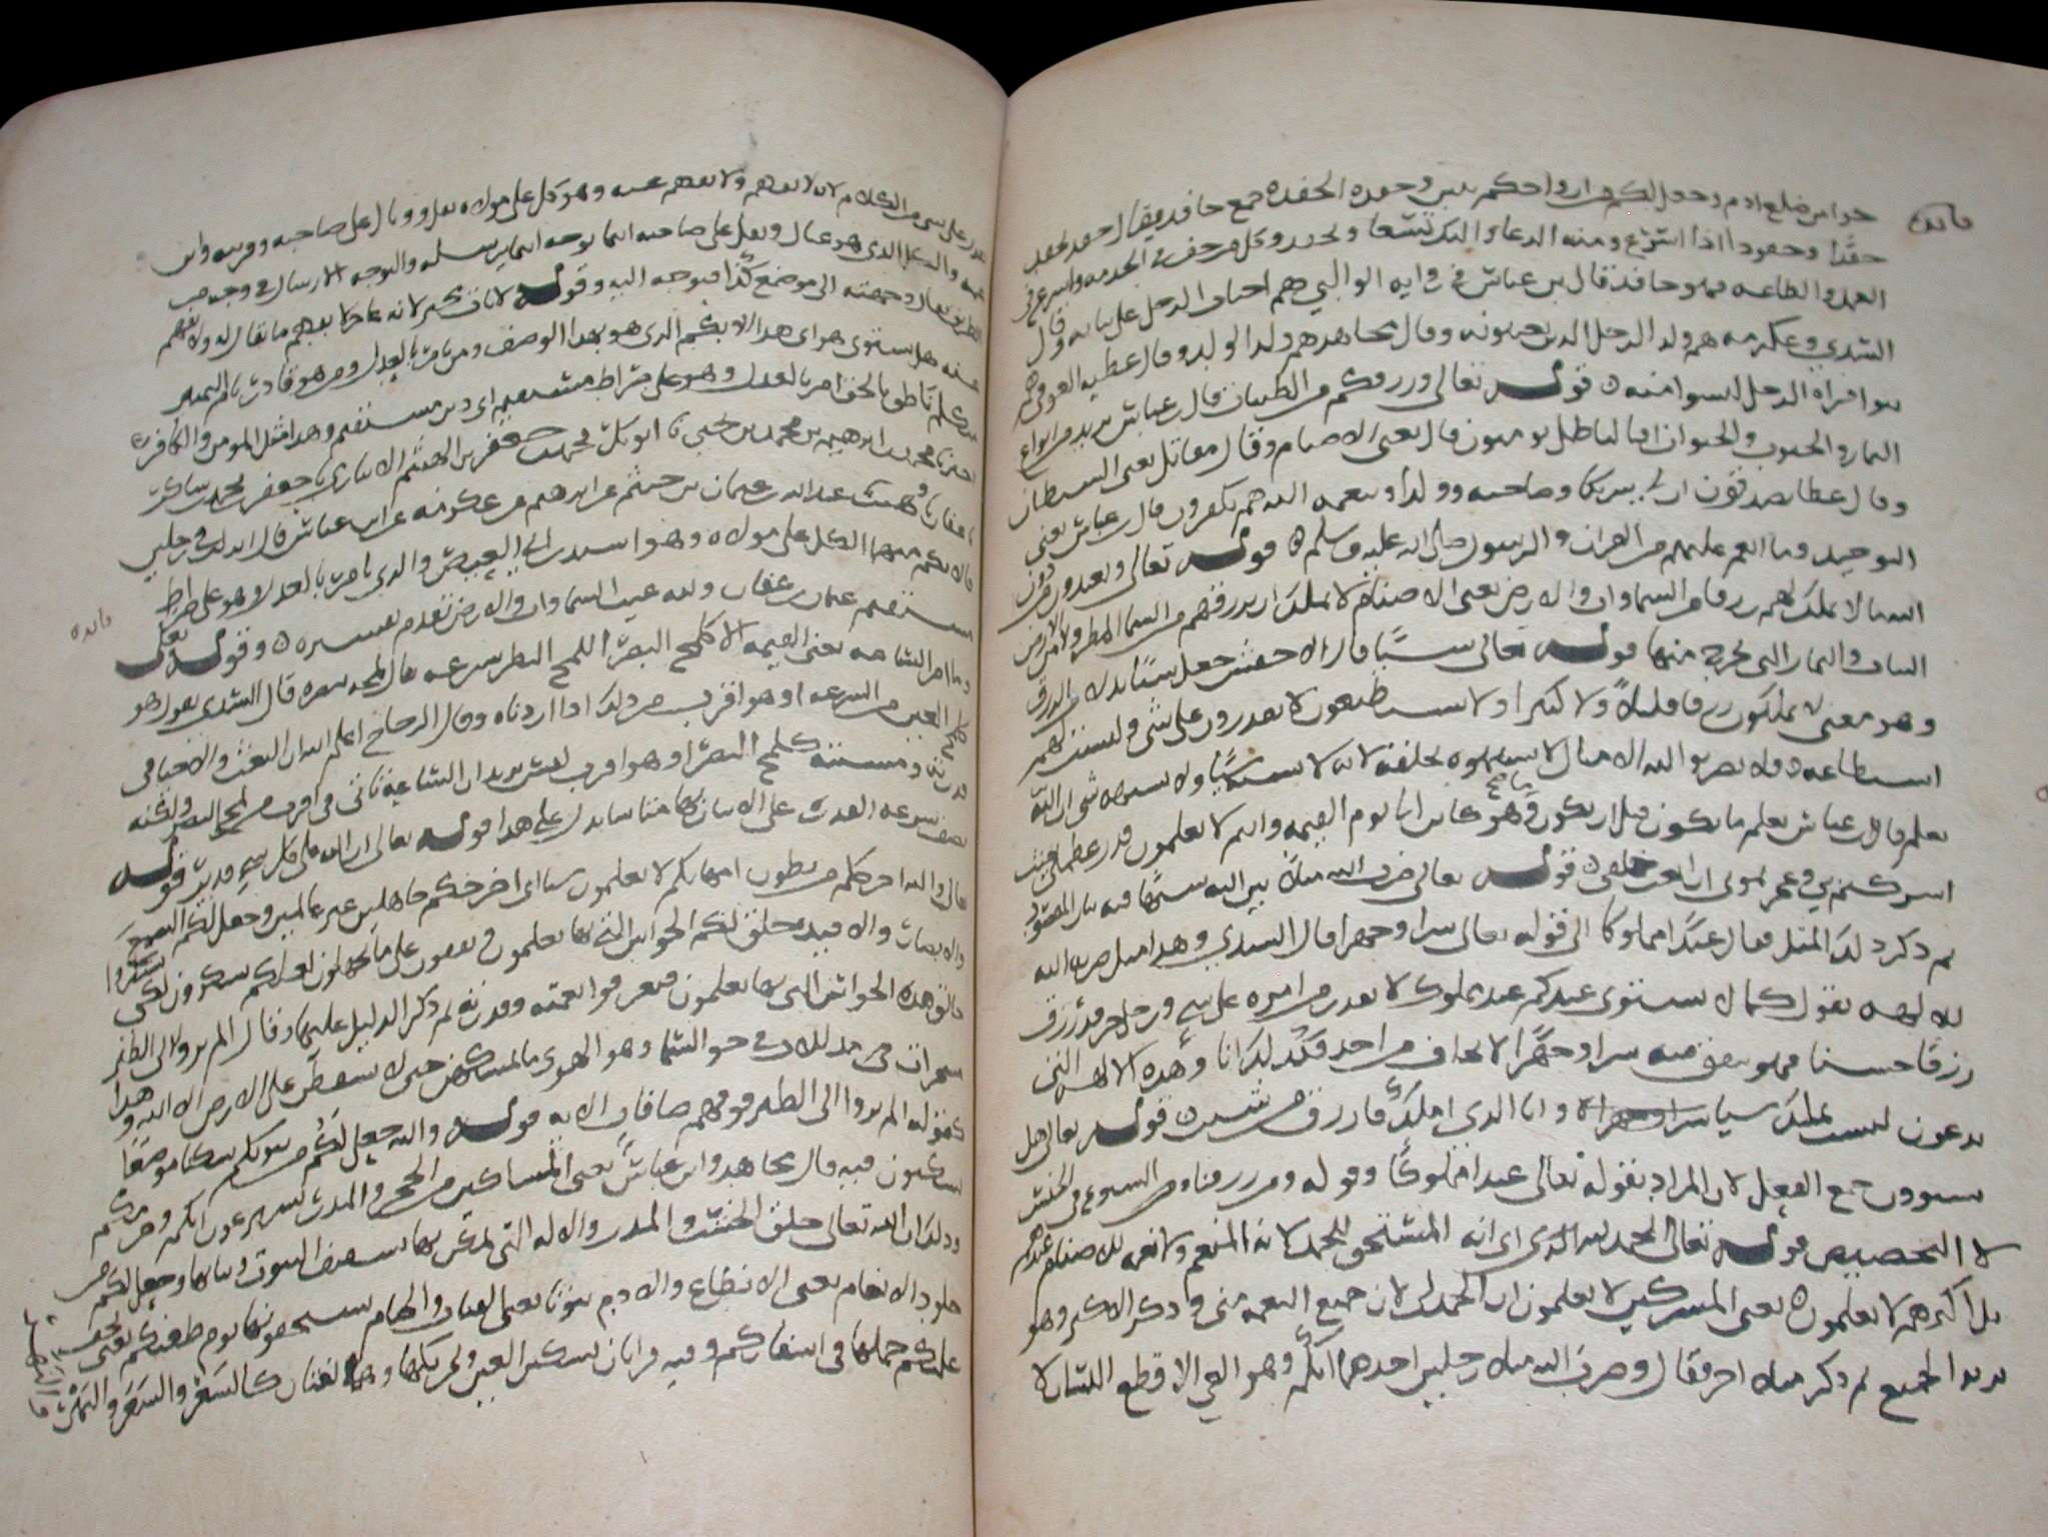 حوا من ضلع ادم وجعل لكم من ازواجكم بنين وحفده الحفده جمع حافد يقال حفد يحفد
حفدا وحفودا اذا اسرع ومنه الدعاء واليك نسعا ونحفد وكل من خف في الخدمه واسرع في
العمل والطاعه فهو حافد قال بن عباس في روايه الوالبي هم اختان الرجل على بناته وقال
السدي وعكرمه هم ولد الرجل الذين يعينونه وقال مجاهد هم ولد الولد وقال عطيه العوفي هم
بنوا امراه الرجل ليسوا منه قوله تعالى ورزقكم من الطيبات قال بن عباس يريد من انواع
الثمار والحبوب والحيوان افبالباطل يومنون قال يعني الاصنام وقال مقاتل يعني الشيطان
وقال عطا يصدقون ان لي شريكا وصاحبه وولدا وبنعمه الله هم يكفرون قال بن عباس يعني
التوحيد وما انعم عليهم من القران والرسول صلى الله عليه وسلم قوله تعالى ويعبدون من دون
الله ما لا يملك لهم رزقا من السماوات والارض يعني الاصنام لا تملك ان ترزقهم من السما المطر ولا من الارض
النبات والثمار التي تخرج منها قوله تعالى شيئا قال الاخفش جعل شيئا بدلا من الرزق
وهو معنى لا يملكون رزقا قليلا ولا كثيرا ولا يستطيعون لا يقدرون على شي وليست لهم
استطاعه فلا تضربوا لله الامثال لا تشبهوه بخلقه لانه لا يشبه شيا ولا يشبهه شي ان الله
يعلم قال بن عباس يعلم ما يكون قبل ان يكون وما هو كاين الى يوم القيمه وانتم لا تعلمون قدر عظمتي حيث
اشركتم بي وعجزتموني ان ابعث خلقي قوله تعالى ضرب الله مثلا بين الله شبها فيه بيان المقصود
ثم ذكر ذلك المثل فقال عبدا مملوكا الى قوله تعالى سرا وجهرا قال السدي وهذا مثل ضربه الله
للالهه يقول كما لا يستوي عندكم عبد مملوك لا يقدر من امره على شي ورجل حر قد رزق
رزقا حسنا فهو ينفق منه سرا وجهرا لا يخاف من احد فكذلك انا وهذه الالهه التي
تدعون ليست تملك شيا وانا الذي املك وارزق من شيت قوله تعالى هل
يستوون جمع الفعل لان المراد بقوله تعالى عبدا مملوكا وقوله ومن رزقناه الشيوع في الجنس
لا التخصيص قوله تعالى الحمد لله اي انه المستحق للحمد لانه المنعم ولا نعمه للاصنام عندهم
بل اكثرهم لا يعلمون يعني المشركين لا يعلمون ان الحمد لي لان جميع النعمه مني وذكر الاكثر وهو
يريد الجميع ثم ذكر مثلا اخر فقال وضرب الله مثلا رجلين احدهما ابكم وهو العي الاقطع اللسان لا
فايده
يقدر على شي من الكلام لانه لا يفهم ولا يفهم عنه وهو كل على مولاه ثقل ووبال على صاحبه وقريبه وابن
عمه والكل الذي هو عيال وثقل على صاحبه اينما يوجهه اينما يرسله والتوجيه الارسال في وجه من
الطريق يقال وجهته الى موضع كذا فتوجه اليه وقوله لا يات بخير لانه عاجز لا يفهم ما يقال له ولا يفهم
عنه هل يستوي هو اي هذا الابكم الذي هو بهذا الوصف ومن يامر بالعدل ومن هو قادر تام التمييز
متكلم ناطق بالحق امر بالعدل وهو على صراط مستقيم اي دين مستقيم وهذا مثل المومن والكافر
اخبرنا محمد بن ابراهيم بن محمد بن يحيى نا ابو بكر محمد بن جعفر بن الهيثم الانباري نا جعفر بن محمد بن شاكر
نا عفان نا وهيب عبدالله بن عثمان بن خيثم عن ابراهيم عن عكرمه عن ابن عباش قال نزلت في رجلين
فالابكم منهما الكل على مولاه وهو اسيد بن ابي العيص والذي يامر بالعدل وهو على صراط
مستقيم عثمان بن عفان ولله غيب السماوات والارض تقدم تفسيره وقوله تعالى
وما امر الساعه يعني القيمه الا كلمح البصر اللمح النظر بسرعه يقال لمحه ببصره قال السدي يقول هو
كلمح العين من السرعه او هو اقرب من ذلك اذا اردناه وقال الزجاج اعلم الله ان البعث والاحيا في
قدرته ومشيئته كلمح البصر او هو اقرب ليس يريد ان الساعه تاتي في اقرب من لمح البصر ولكنه
يصف سرعه القدره على الاتيان بها متى شا يدل على هذا قوله تعالى ان الله على كل شي قدير قوله
تعالى والله اخرجكم من بطون امهاتكم لا تعلمون شيا اي اخرجكم جاهلين غير عالمين وجعل لكم السمع
والابصار والافيده خلق لكم الحواس التي بها تعلمون وتقفون على ما تجهلون لعلكم تشكرون لكي تشكروا
خالق هذه الحواس التي بها تعلمون فتعرفوا نعمته وقدرته ثم ذكر الدليل عليها وقال الم يروا الى الطير
مسخرات مذللات في جو السما وهو الهوى ما يمسكهن حتى لا يسقطن على الارض الا الله وهذا
كقوله الم يروا الى الطير فوقهم صافات الايه قوله والله جعل لكم من بيوتكم سكنا موضعا
تسكنون فيه قال مجاهد وابن عباس يعني المساكين من الحجر والمدر تستر عوراتكم وحرمكم
وذلك ان الله تعالى خلق الخشب والمدر والاله التي يمكن بها تسقيف البيوت وبناوها وجعل لكم من
جلود الانعام يعني الانطاع والادم بيوتا يعني القباب والخيام تستخفونها يوم ظعنكم يعني يخف
عليكم حملها في اسفاركم وفيه قراتان تسكين العين وتحريكها وهما لغتان كالشعر والشعر والنهر
فايده